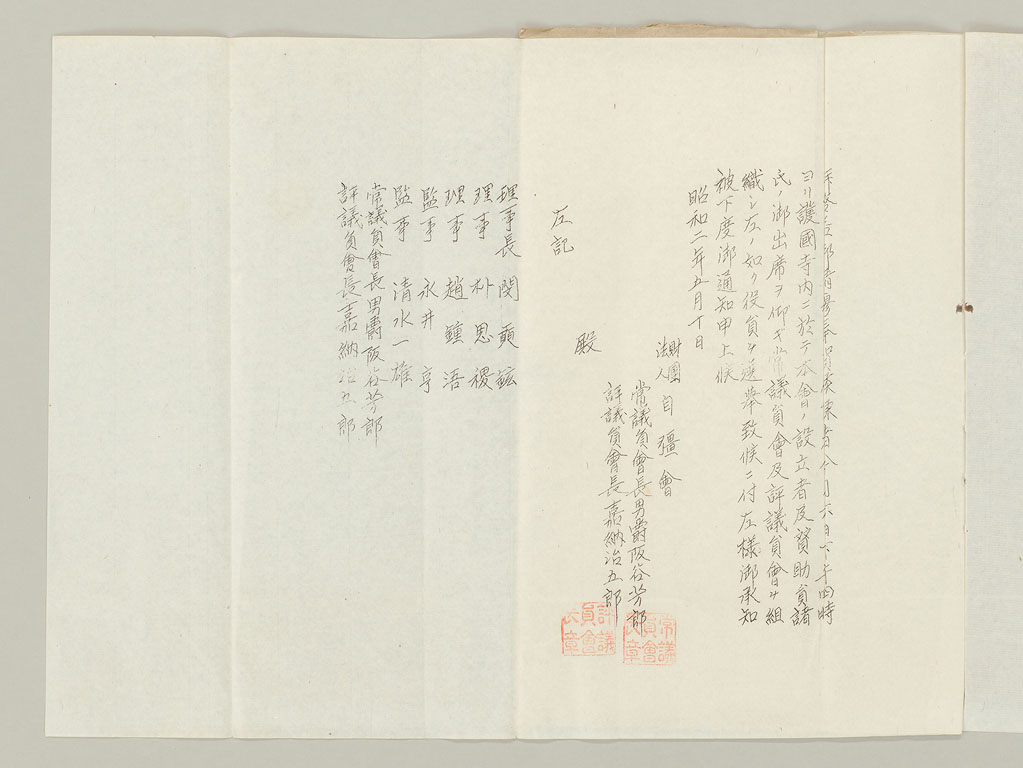 六日下午四時
ヨリ護國寺内ニ於テ本會ノ設立者及賛助員諸
氏ノ御出席ヲ仰キ常議員會及評議員會ヲ組
織シ左ノ如ク役員ヲ選挙致候ニ付左様御承知
被下度御通知申上候
昭和二年五月十日
財團法人 自彊會
常議員會長男爵阪谷芳郎
評議員會長嘉納治五郎
殿
左記
理事長 閔 鉉
理事 朴思稷
理事 趙鐘浯
監事 永井亨
監事 清水一雄
常議員會長男爵阪谷芳郎
評議員會長嘉納治五郎
常議員會長章
評議員會長章